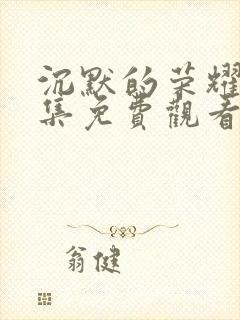 沉默的荣耀
集免費觀看
翁健